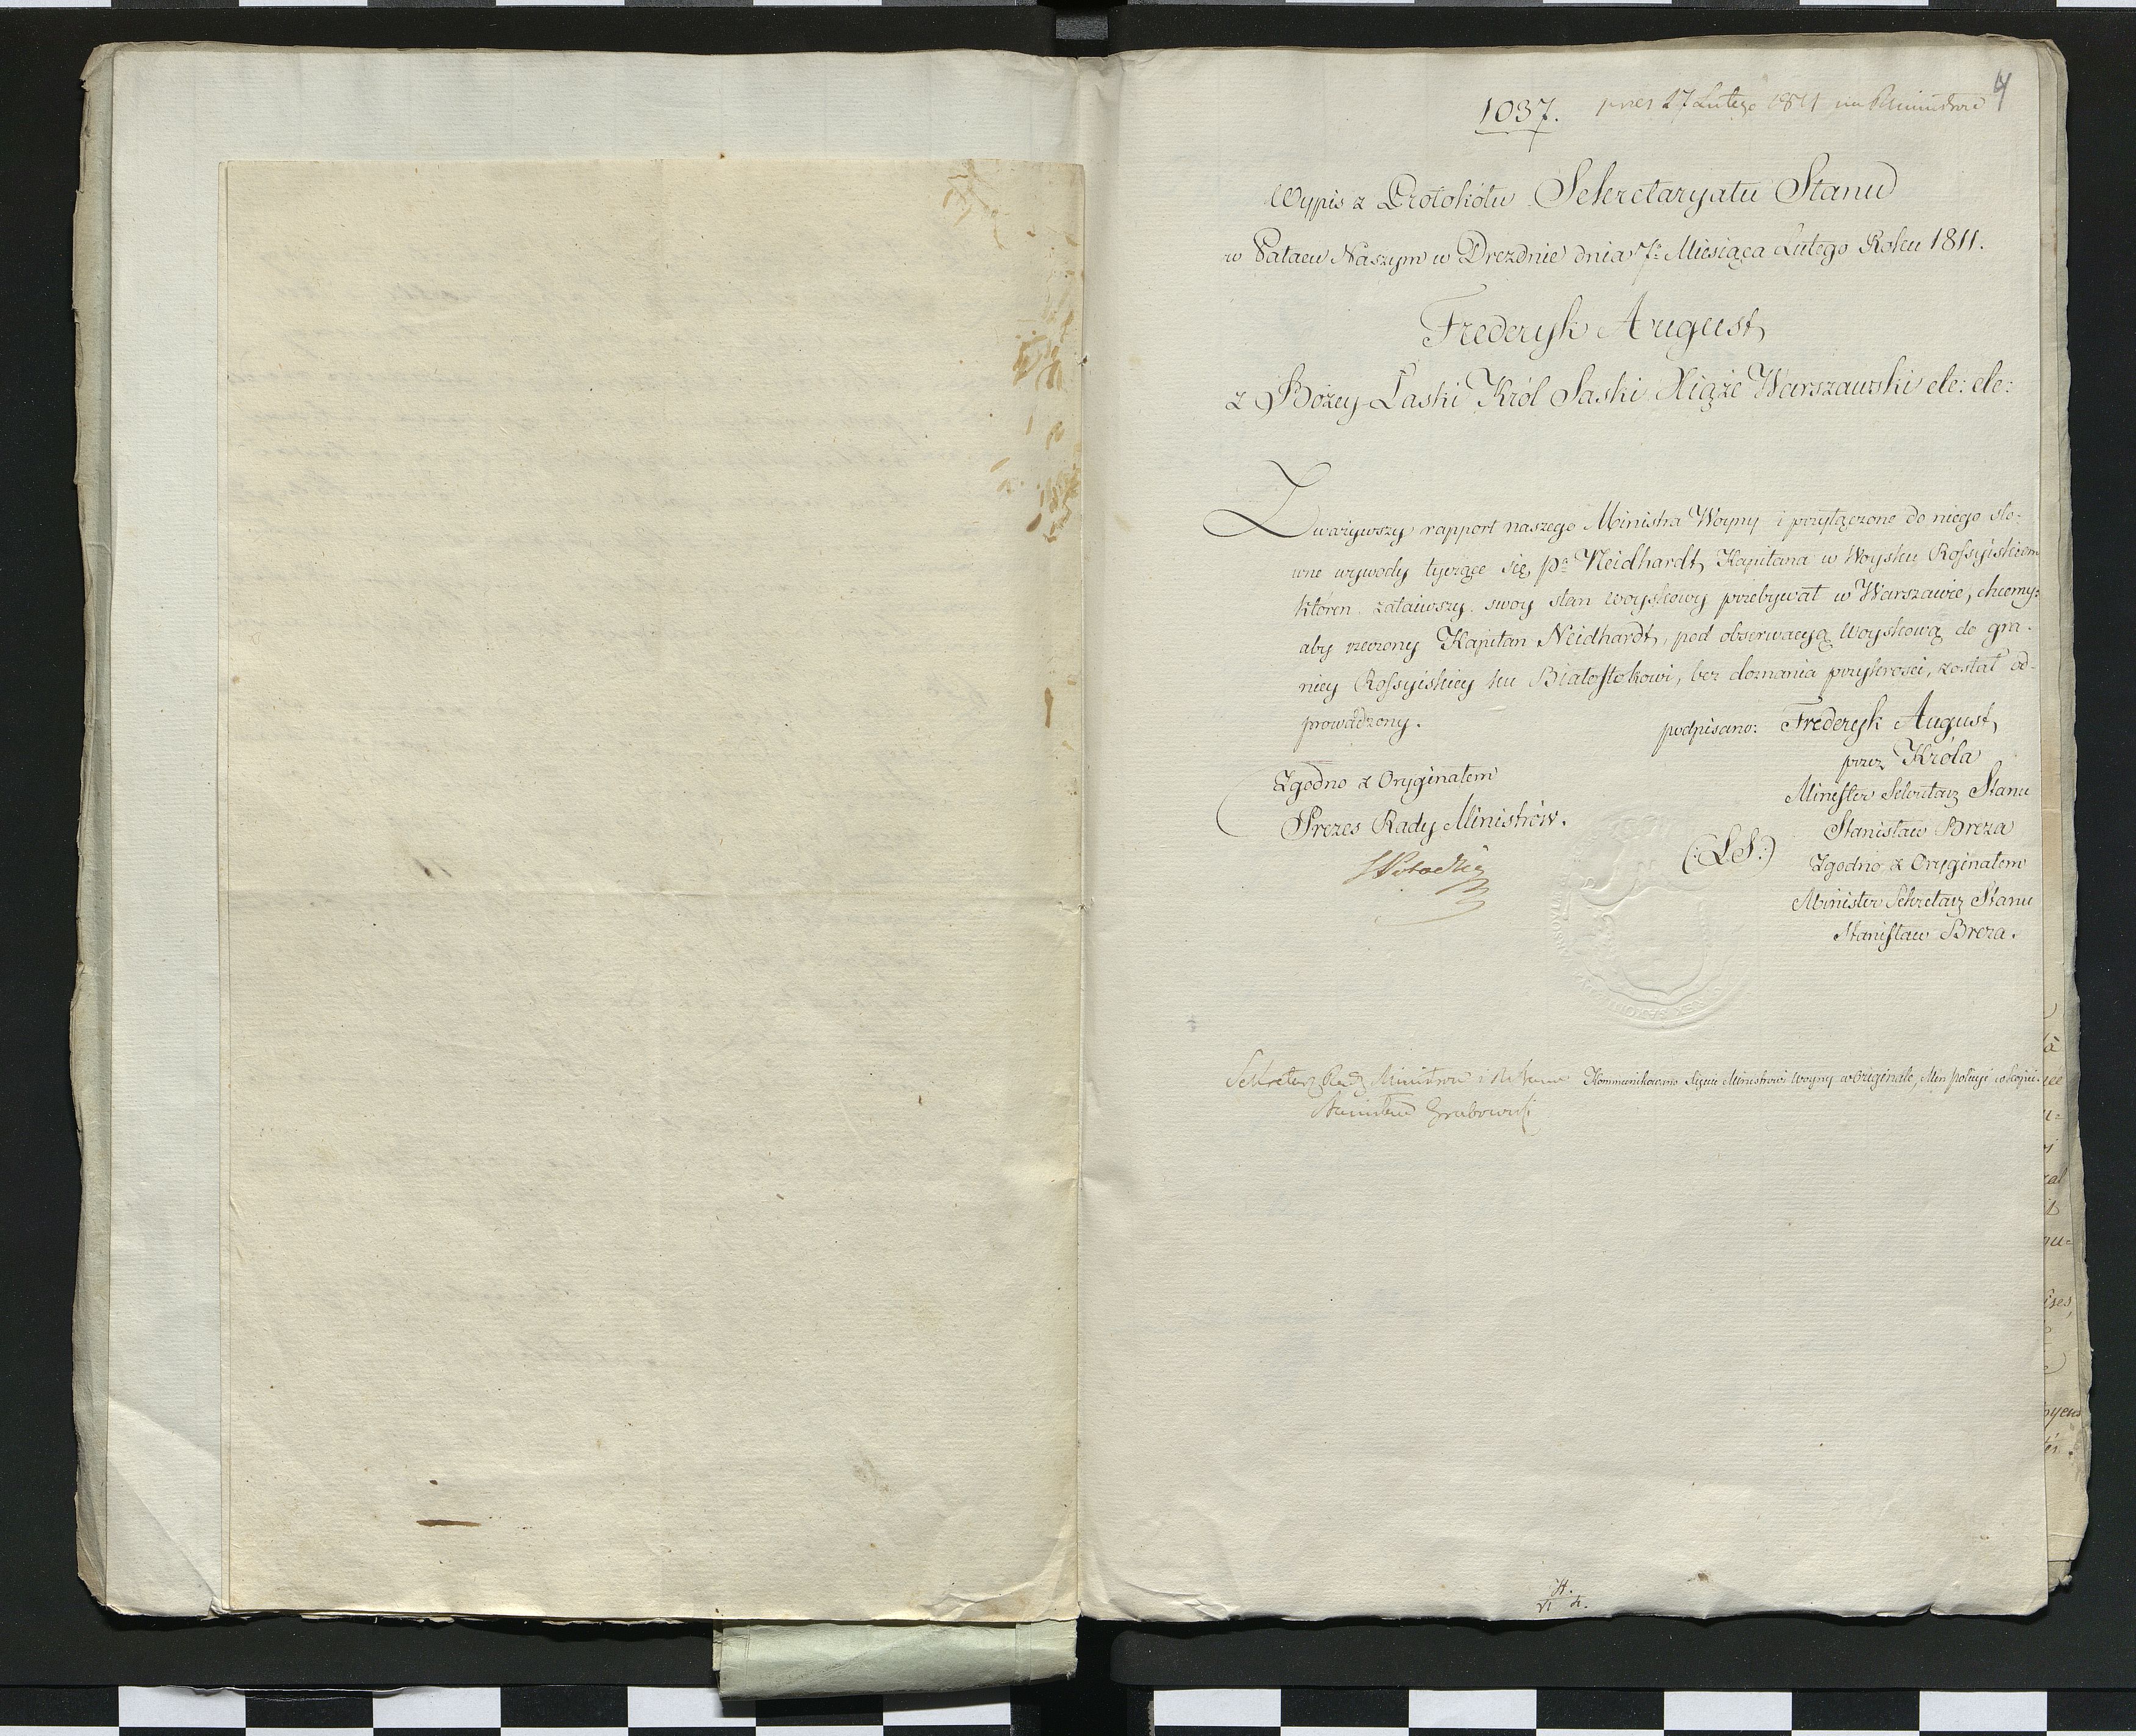 4
1037. pres 27 Lutego 1811 na R Ministrów
Wypis z Protokółu Sekretaryatu Stanu
w Pałacu Naszym w Dreznie dnia 7º Miesiąca Lutego Roku 1811.
Frederyk August,
z Bożey Łaski Król Saski Xiąże Warszawski etc: etc:
Zważywszy rapport naszego Ministra Woyny i przyłączone do niego sło-
wne wywody tyczące się pª Neidhardt, Kapitana w Woysku Rossyiskiem
któren zataiwszy swoy stan woyskowy przebywał w Warszawie, chcemy:
aby rzeczony Kapitan Neidhardt, pod obserwacyą Woyskową do gra-
nicy Rossyiskiey ku Białostokowi, bez doznania przykrości, został od-
prowadzony.
podpisano: Frederyk August,
przez Króla
Minister Sekretarz Stanu
Stanisław Breza
(:LS:)
Zgodno z Oryginałem
Minister Sekretarz Stanu
Stanisław Breza.
Zgodno z Oryginałem
Prezes Rady Ministrów.
SPotocki
Sekretarz Rady Ministrów i R Stanu
Stanisław Grabowski
Kommunikowano Xięciu Ministrowi Woyny w originale, Min Policyi w kopii.